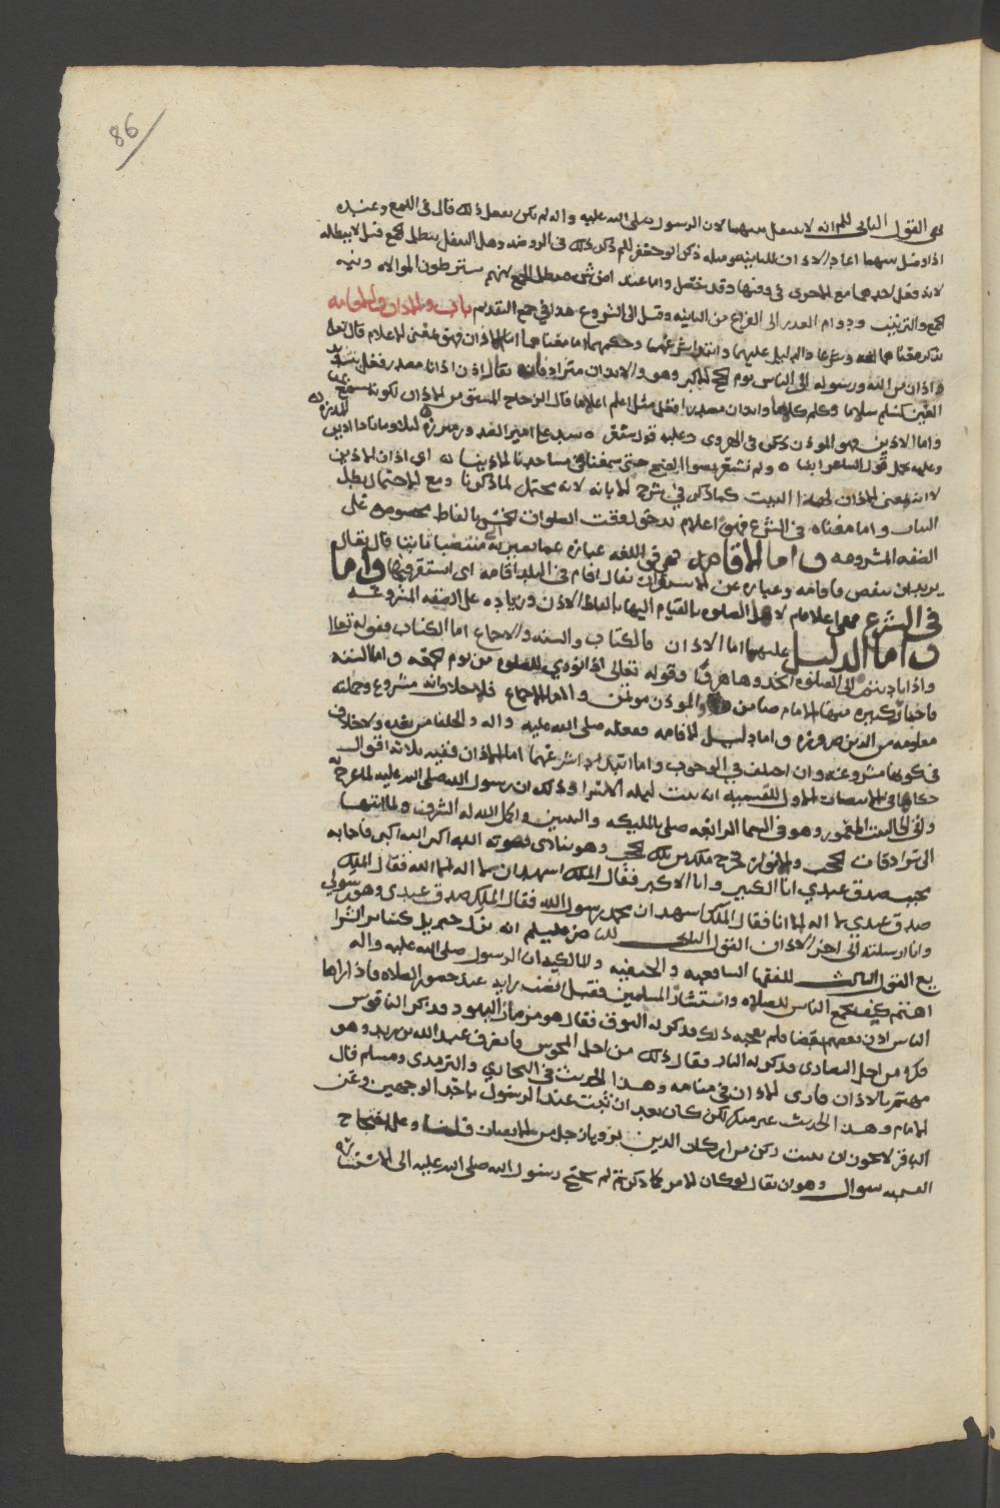 86
القول الثاني للم انه لا يتنفل بينهما لان الرسول صلى الله عليه واله لم يكن يفعل ذلك قال في اللمع وعنده
اذا فصل بينهما اعاد الاذان للثانية ومثله ذكر ابو جعفر للم ذكر ذلك في الروضه وهل التنفل يبطل الجمع قيل لا يبطله
لانه فعل احدهما مع الاخرى في وقتها وقد تنفصل واما عند يبطل الجمع لانهم يشترطون الموالاه ونيه
الجمع والترتيب ودوام العذر الى الفراغ من الثانيه وقيل الى الشروع هذا في جمع التقديم باب والاذان والاقامه
نذكر معناهما لغه وشرعا والدليل عليهما وابتدا شرعهما وحكمهما اما معناهما اما الاذان فهو بمعنى الاعلام قال تعالى
واذان من الله ورسوله الى الناس يوم الحج الاكبر وهو والايذان مترادفان يقال اذن اذانا مصدر فعل بتشديد
العين كسلم سلاما وكلم كلاما وايذان مصدر افعل مثل اعلم اعلاما قال الزجاج المشتق من الاذان لكونه يسمع بها
واما الاذين فهو الموذن ذكره في الهروي وعليه قول
وعليه حمل قول الشاعر ايضا ولم نشعر بضوا الصبح حتى سمعنا في مساجدنا الاذينا اي اذان الاذين
لا انه بمعنى الاذان لهذا البيت كما ذكره في شرح الابانه لانه محتمل لما ذكرنا ومع الاحتمال يبطل
البيان واما معناه في الشرع فهو اعلام بدخول وقت الصلوات الخمس بالفاظ مخصوصه على
الصفه المشروعه واما الاقامه فهي في اللغه عباره عما يصير به منتصبا ثابتا قال تعالى
يريد ان ينقض فاقامه وعباره عن الاستقرار يقال اقام في البلد اقامه اي استقر فيها واما
في الشرع فهي اعلام لاهل الصلوه بالقيام اليها بالفاظ الاذان وزياده على الصفه المشروعه
واما الدليل عليهما اما الاذان فالكتاب والسنه والاجماع اما الكتاب فقوله تعالى
واذا ناديتم الى الصلوه اتخذوها هزوا وقوله تعالى اذا نودي للصلوه من يوم الجمعه واما السنه
فاخبار كثيره منها الامام ضامن والموذن موتمن واما الاجماع فلا خلاف انه مشروع وجملته
معلومه من الدين ضروره واما دليل الاقامه ففعله صلى الله عليه واله والخلفا من بعده ولا خلاف
في كونها مشروعه وان اختلف في الوجوب واما ابتدا شرعهما اما الاذان ففيه ثلاثه اقوال
حكاها في الانتصار الاول للقسميه انه ثبت ليله الاسرا وذلك ان رسول الله صلى الله عليه لما عرج به
وانتهى الى البيت المعمور وهو في السما الرابعه صلى بالملئكه والنبيين واكمل الله له الشرف ولما انتهى
الى سرادقات الحجب والانوار خرج ملك من تلك الحجب وهو ينادي بصوته الله اكبر الله اكبر فاجابه
مجيب صدق عبدي انا الكبير وانا الاكبر فقال الملك اشهد ان لا اله الا الله فقال الملك
صدق عبدي لا اله الا انا فقال الملك اشهد ان محمد رسول الله فقال الملك صدق عبدي وهو رسولي
وانا ارسلته الى اخر الاذان القول الثاني للناصر عليلم انه نزل جبريل كسائر الشرا
يع القول الثالث للفقها الشافعيه والحنفيه والمالكيه ان الرسول صلى الله عليه واله
اهتم كيف يجمع الناس للصلاه واستشار المسلمين فقيل انصب رايه عند حضور الصلاه فاذا راها
الناس اذن بعضهم بعضا فلم يعجبه ذلك فذكر له البوق فقال هو مزمار اليهود فذكر الناقوس
فكره من اجل النصارى فذكر له النار فقال ذلك من اجل المجوس فانصرف عبد الله بن زيد وهو
مهتم بالاذان فارى الاذان في منامه وهذا الحديث في البخاري والترمذي ومسلم قال
الامام وهذا الحديث غير منكر لكن كان بعد ان ثبت عند الرسول باحد الوجهين وعن
الباقر لا يجوز ان يثبت ركن من اركان الدين برويا رجل من الانصار قلنا وعلى احتجاج
القسميه سوال وهو ان يقال لو كان الامر كما ذكرتم لم يحتج رسول الله صلى الله عليه الى الاستشاره